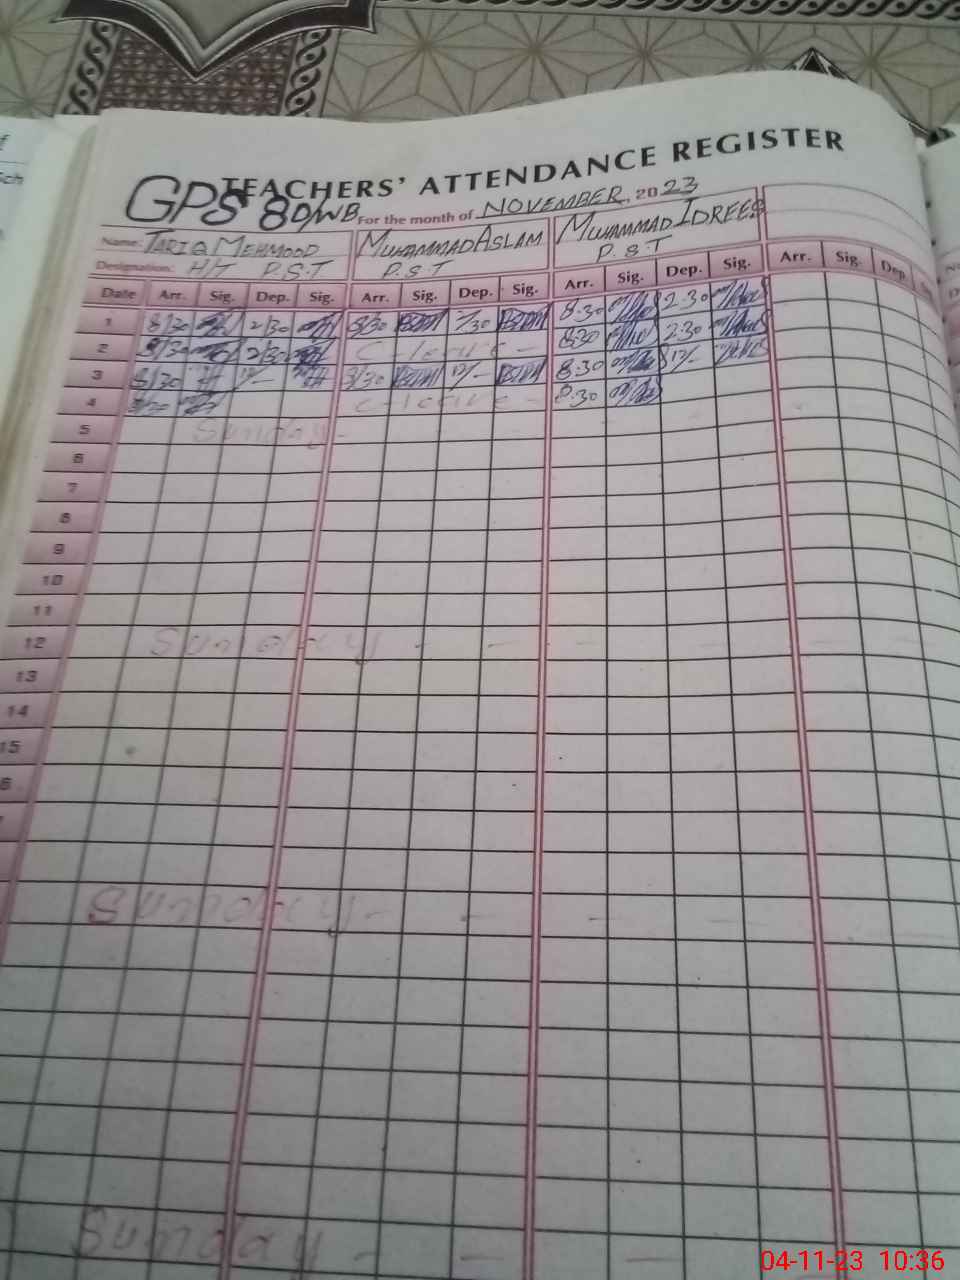 f
Sch
TEACHERS' ATTENDANCE REGISTER
GPS 8D/WB For the month of NOVEMBER, 2023
Name: TARIQ MEHMOOD MUHAMMAD ASLAM MUHAMMAD IDREES
Designation: H/T P.S.T P.S.T P.S.T
Date Arr. Sig. Dep. Sig. Arr. Sig. Dep. Sig. Arr. Sig. Dep. Sig. Arr. Sig. Dep
1 8/30 2/30 8/30 2/30 8.30 2.30
2 8/30 2/30 C-leave - 8.30 2.30
3 8/30 12/- 8/30 12/- 8.30 12/-
4 8/30 C-leave - 8.30
5 Sunday -
6
7
8
9
10
11
12 Sunday - - - - -
13
14
15
6
Sunday - - - - -
Sunday - - -
04-11-23 10:36